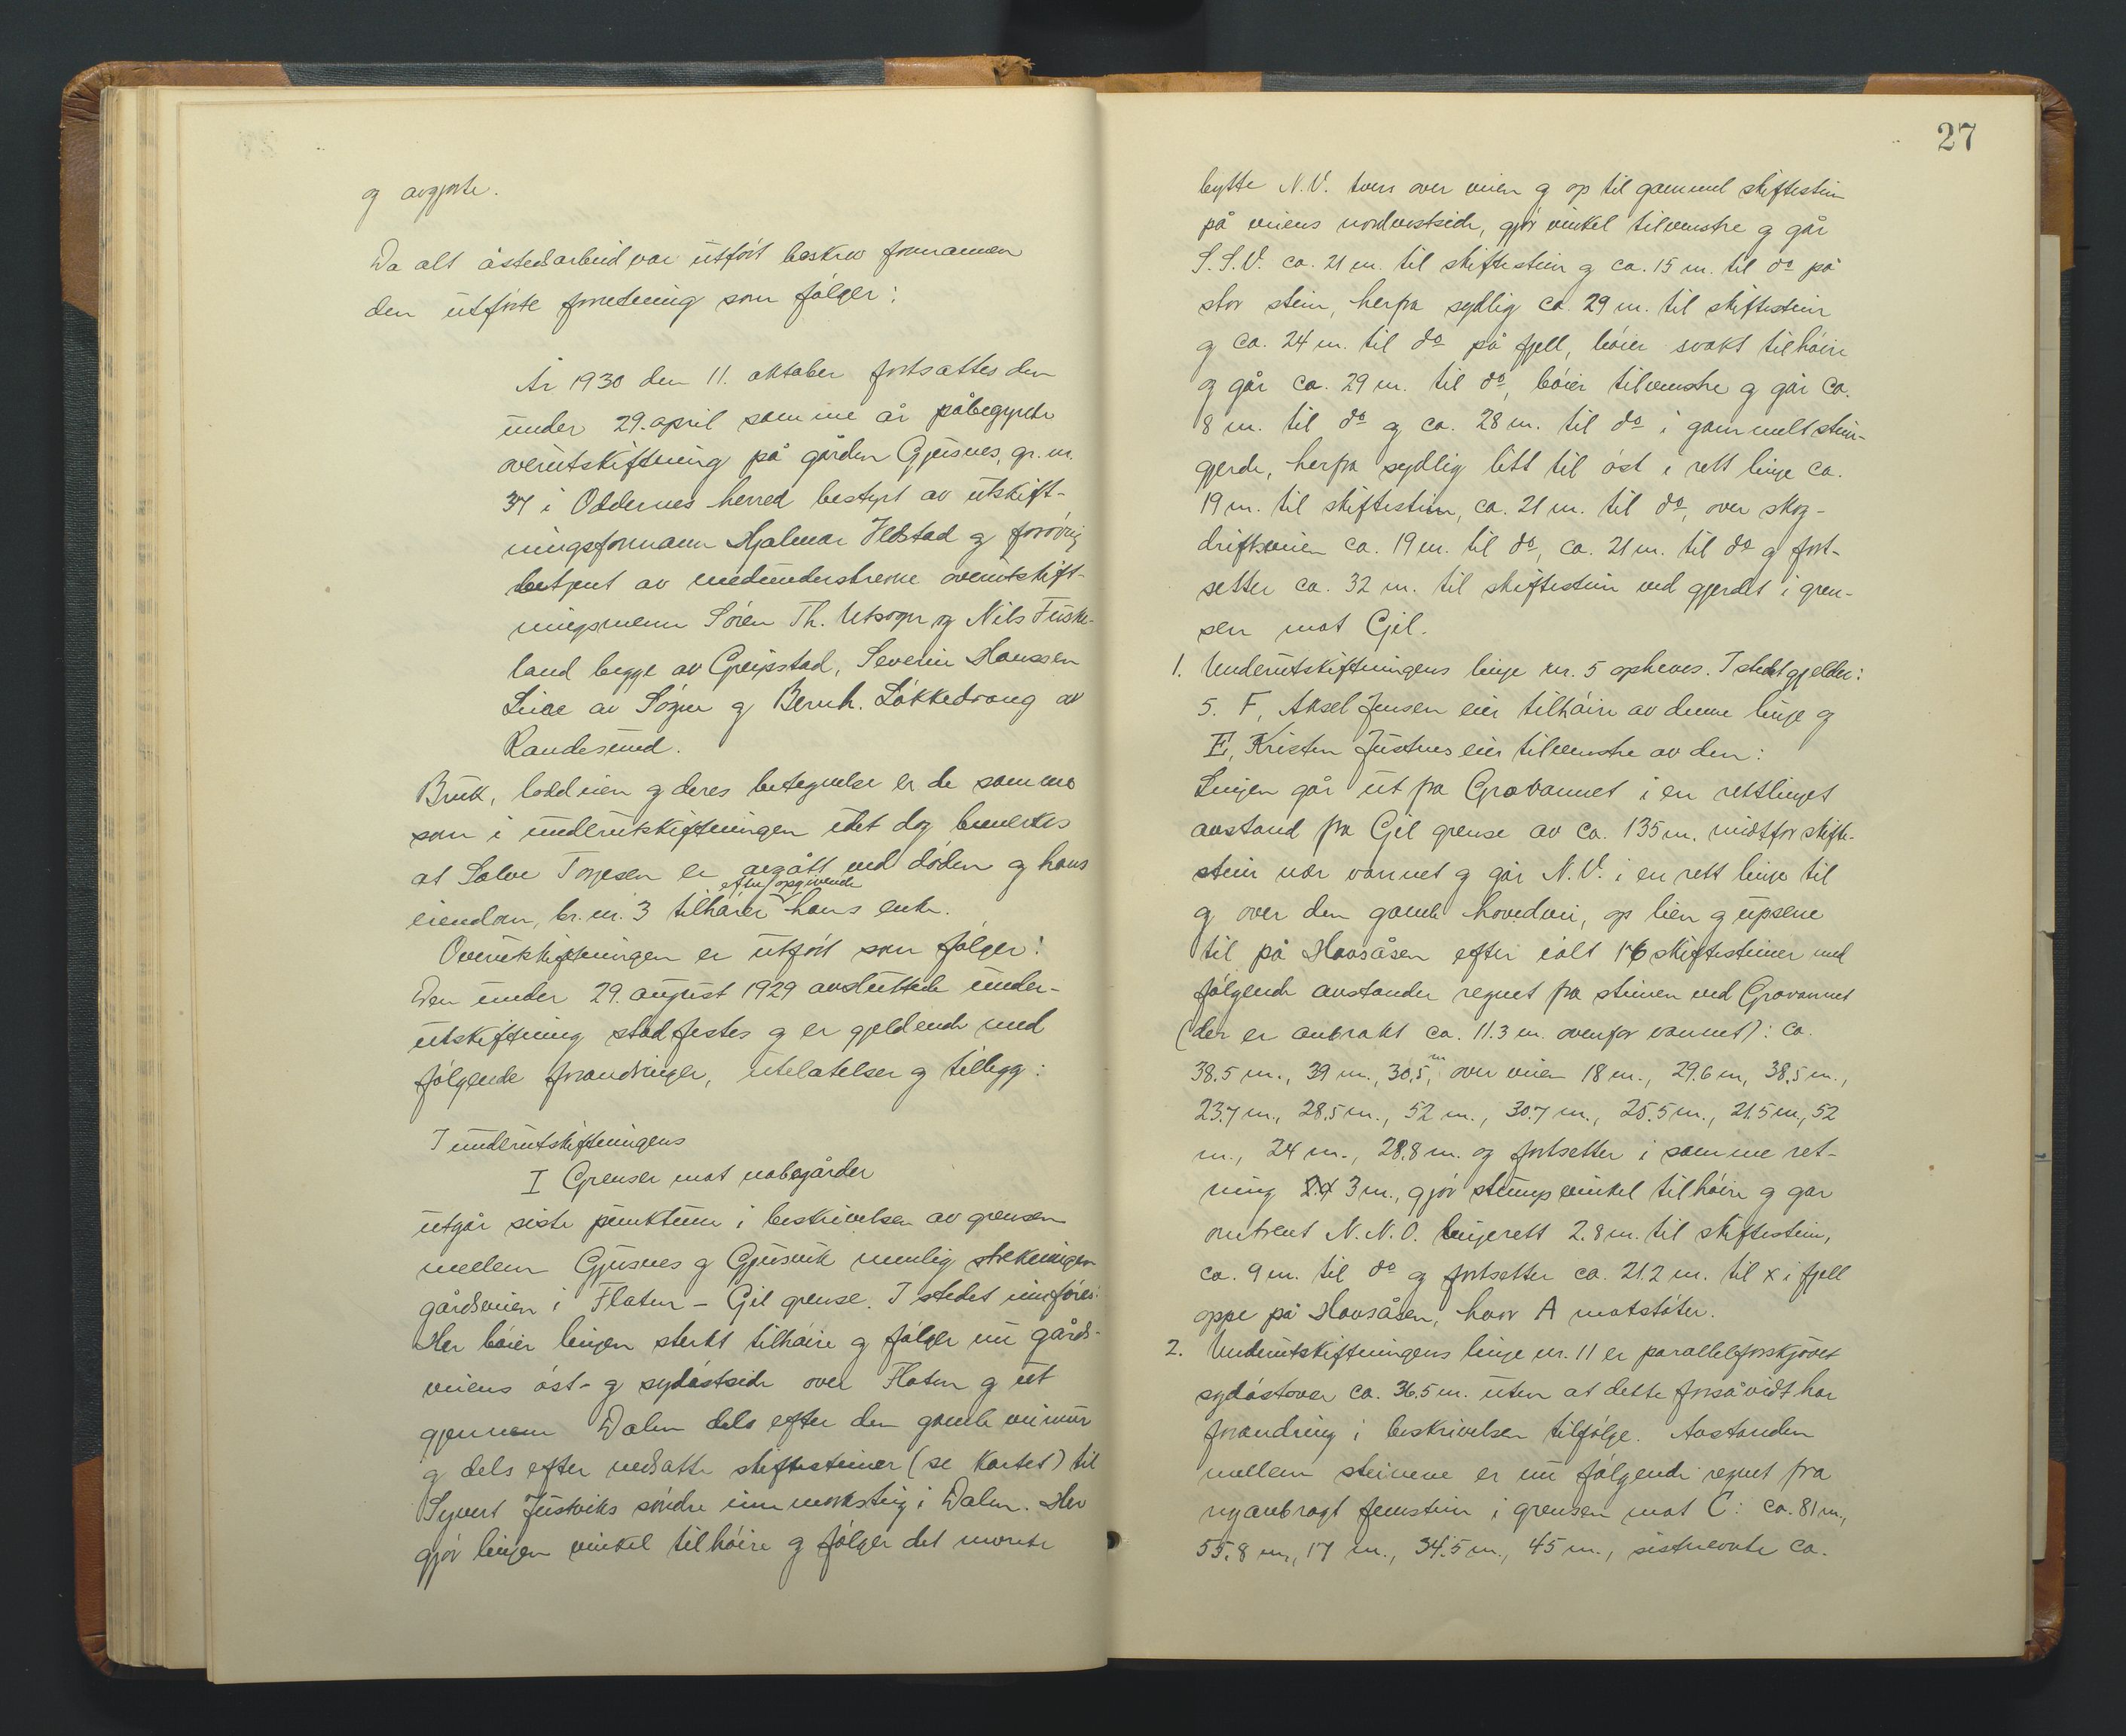 og avgjorte.
Da alt åstedsarbeid var utført beskrev formannen
den utførte forretning som følger:
År 1930 den 11. oktober fortsattes den
under 29. april samme år påbegynte
overutskiftning på gården Gjusnes, gr. nr.
37 i Oddernes herred bestyrt av utskift-
ningsformann Hjalmar Ildstad og forøvrig
betjent av medunderskrevne overutskift-
ningsmenn Sören Th. Utsogn og Nils Fuske-
land begge av Greipstad, Severin Hanssen
av Søgne og Bernh. Løkkedrang av
Randesund.
Bruk, lodd eien og deres betegnelse er de samme
som i underutskiftningen idet dog bemerkes
at Salve Torjesen er avgått ved døden og hans
eiendom, br. nr. 3 tilhører efter opgivende hans enke.
Overutskiftningen er utført som følger:
Den under 29. august 1929 avsluttede under-
utskiftning stadfestes og er gjeldende med
følgende forandringer, utelatelser og tillegg:
I underutskiftningens
I Grenser mot nabogårder
utgår siste punktum i beskrivelsen av grensen
mellem Gjusnes og Gjusvik nemlig strekningen
gårdsveien i Flaten - Gil grense. I stedet innføres:
Her bøier linjen sterkt tilhøire og følger nu gårds-
veiens øst- og sydøstside over Flaten og ut
gjennem Dalen dels efter den gamle veimur
og dels efter nedsatte skiftesteiner (se kartet) til
Syvert Justviks søndre innmarksteig i Dalen. Her
gjør linjen vinkel tilhøire og følger det
27
bytte N.V. tvers over veien og op til gammel skiftestein
på veiens nordvestside, gjør vinkel tilvenstre og går
S.S.V. ca. 21 m. til skiftestein og ca. 15 m. til do på
stor stein, herfra sydlig ca. 29 m. til skiftestein
og ca. 24 m. til do på fjell, bøier svakt tilhøire
og går ca. 29 m. til do, bøier tilvenstre og går ca.
8 m. til do og ca. 28 m. til do i gammelt stein-
gjerde, herfra sydlig litt til øst i rett linje ca.
19 m. til skiftestein, ca. 21 m. til do, over skog-
driftsveien ca. 19 m. til do, ca. 21 m. til do og fort-
setter ca. 32 m. til skiftestein ved gjerdet i gren-
sen mot Gil.
1. Underutskiftningens linje nr. 5 opheves. I stedet gjelder:
5. F, Aksel Jensen eier tilhøire av denne linje og
E, Kristen Justnes eier tilvenstre av den:
Linjen går ut fra Gravannet i en rettlinjet
avstand fra Gil grense av ca. 135 m. midt for skifte-
stein nær vannet og går N.V. i en rett linje til
og over den gamle hovedvei, op lien og upsene
til på Haasåsen efter ialt 16 skiftesteiner med
følgende avstander regnet fra steinen ved Gravannet
(der er anbrakt ca. 11.3 m. ovenfor vannet): ca.
38.5 m., 39 m., 30.5 m, over veien 18 m., 29.6 m, 38.5 m.,
23.7 m., 28.5 m., 52 m., 30.7 m., 25.5 m., 21.5 m., 52
m., 24 m., 28.8 m. og fortsetter i samme ret-
ning 3 m., gjør stump vinkel tilhøire og går
omtrent N.N.O. linjerett 2.8 m. til skiftestein,
ca. 9 m. til do og fortsetter ca. 21.2 m. til x i fjell
oppe på Haasåsen, hvor A motstøter.
2. Underutskiftningens linje nr. 11 er parallelforskjøvet
sydøstover ca. 36.5 m. uten at dette forsåvidt har
forandring i beskrivelsen tilfølge. Avstanden
mellem steinene er nu følgende regnet fra
nyanbragt stein i grensen mot C: ca. 81 m.,
55.8 m., 17 m., 34.5 m., 45 m., sistnevnte ca.